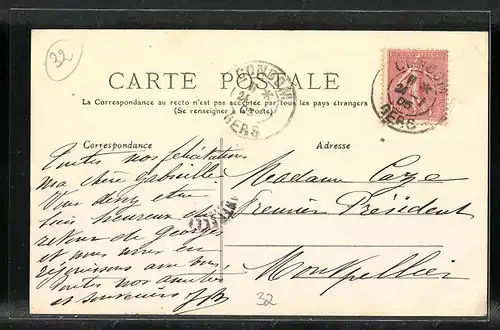 32
CARTE POSTALE
La Correspondance au recto n'est pas acceptée par tous les pays étrangers
(Se renseigner à la Poste)
CONDOM
GERS
CONDOM
GERS
Correspondance
Adresse
Toutes nos félicitations
Ma chère Gabrielle
Vous devez être
bien heureux du
retour de Georges
et nous nous en
réjouissons avec vous.
Toutes nos amitiés
et souvenirs
Madame Caze
Premier Président
Montpellier
32